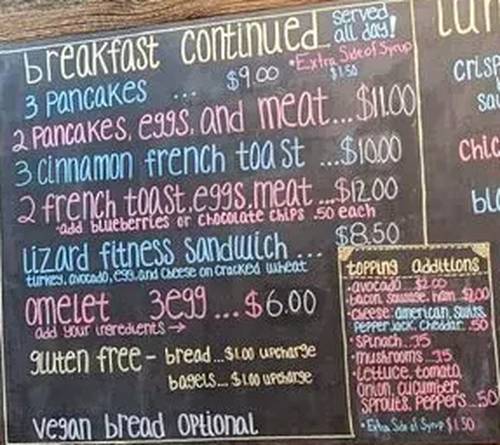 breakfast continued served all day!
• Extra Side of Syrup $1.50
3 Pancakes ... $9.00
2 Pancakes, eggs, and meat...$11.00
3 cinnamon french toast ...$10.00
2 french toast, eggs, meat ...$12.00
• add blueberries or chocolate chips .50 each
Lizard fitness sandwich ... $8.50
turkey, avocado, egg, and cheese on cracked wheat
omelet 3egg ... $6.00
add your ingredients →
gluten free - bread ... $1.00 upcharge
bagels ... $1.00 upcharge
vegan bread optional
topping additions
• avocado $2.00
• bacon, sausage, ham $2.00
• cheese: american, swiss,
Pepper Jack, Cheddar .50
• Spinach .75
• mushrooms .75
• Lettuce, tomato,
onion, cucumber,
Sprouts, Peppers ...50
• Extra Side of Syrup $1.50
crisp
chic